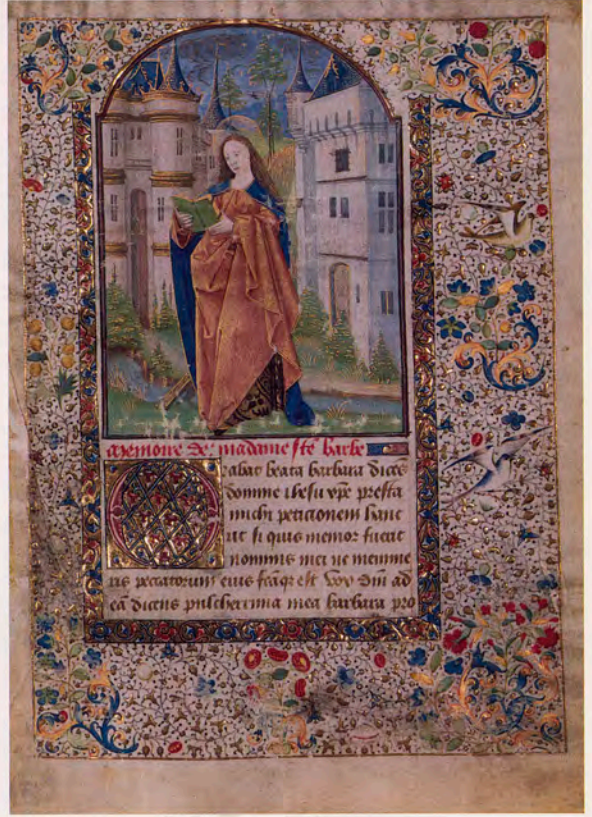 Memoire de madame ste barbe
Orabat beata barbara dices
domine ihesu xpe presta
michi peticionem hanc
ut si quis memor fuerit
nominis mei ne memine
ris peccatorum eius fcaqe est vox dni ad
ea dicens pulcherrima mea barbara pro